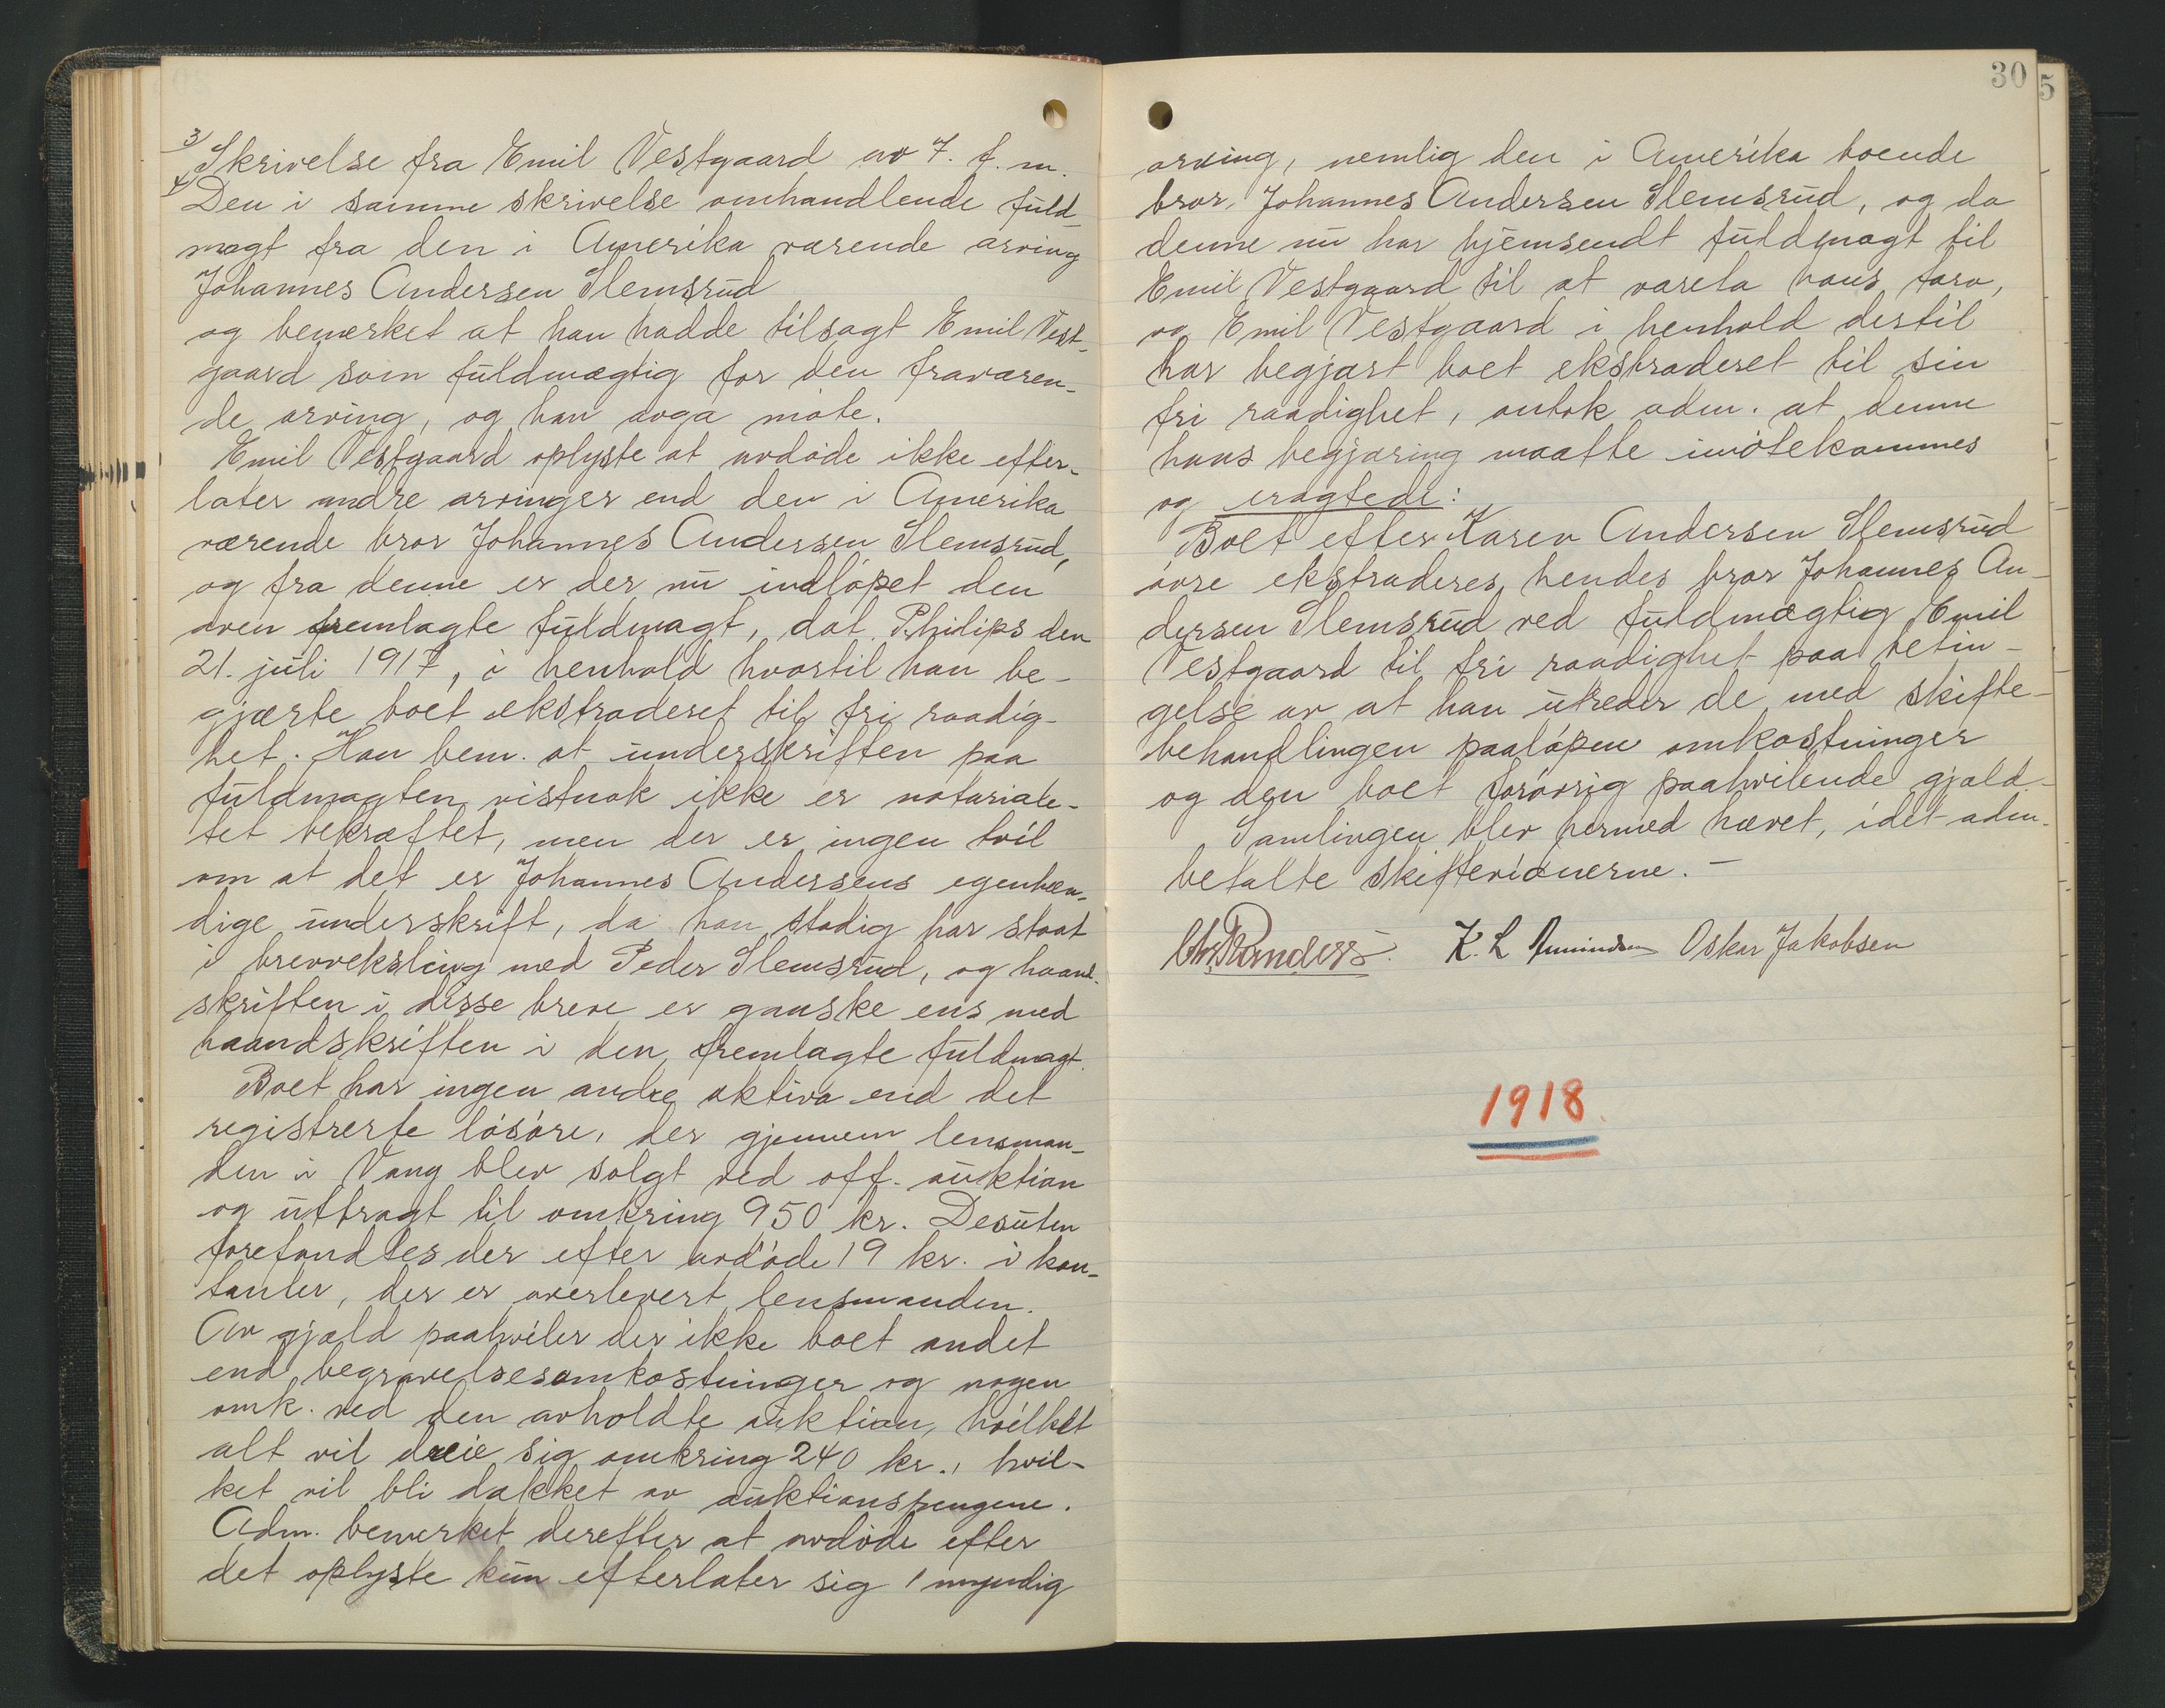 3/ Skrivelse fra Emil Vestgaard av 7. f. m.
4/ Den i samme skrivelse omhandlende fuld-
magt fra den i Amerika værende arving
Johannes Andersen Slemsrud
og bemerket at han hadde tilsagt Emil Vest-
gaard som fuldmægtig for den fraværen-
de arving, og han avga møte.
Emil Vestgaard oplyste at avdøde ikke efter-
later andre arvinger end den i Amerika
værende bror Johannes Andersen Slemsrud,
og fra denne er der nu indløpet den
oven fremlagte fuldmagt, dat. Philips den
21. juli 1917, i henhold hvortil han be-
gjærte boet ekstraderet til fri raadig-
het. Han bem. at underskriften paa
fuldmagten vistnok ikke er notariale-
tet bekræftet, men der er ingen tvil
om at det er Johannes Andersens egenhæn-
dige underskrift, da han stadig har staat
i brevveksling med Peder Slemsrud, og haand-
skriften i disse breve er ganske ens med
haandskriften i den fremlagte fuldmagt.
Boet har ingen andre aktiva end det
registrerte løsøre, der gjennem lensman-
den i Vang blev solgt ved off. auktion
og utbragt til omkring 950 kr. Desuten
forefandtes der efter avdøde 19 kr. i kon-
tanter, der er overlevert lensmanden.
Av gjæld paahviler der ikke boet andet
end begravelsesomkostninger og nogen
omk. ved den avholdte auktion, hvilket
alt vil dreie sig omkring 240 kr., hvil-
ket vil bli dækket av auktionspengene.
Adm. bemerket derefter at avdøde efter
det oplyste kun efterlater sig 1 myndig
30
5
arving, nemlig den i Amerika boende
bror, Johannes Andersen Slemsrud, og da
denne nu har hjemsendt fuldmagt til
Emil Vestgaard til at vareta hans tarv,
og Emil Vestgaard i henhold dertil
har begjært boet ekstraderet til sin
fri raadighet, antok adm. at denne
hans begjæring maatte imøtekommes
og eragtede:
Boet efter Karen Andersen Slemsrud
øvre ekstraderes hendes bror Johannes An-
dersen Slemsrud ved fuldmægtig Emil
Vestgaard til fri raadighet paa betin-
gelse av at han utreder de med skifte-
behandlingen paaløpne omkostninger
og den boet forøvrig paahvilende gjæld.-
Samlingen blev hermed hævet, idet adm.
betalte skiftevidnerne. -
Chr. Randers. K. L. Amundsen Oskar Jakobsen
1918.